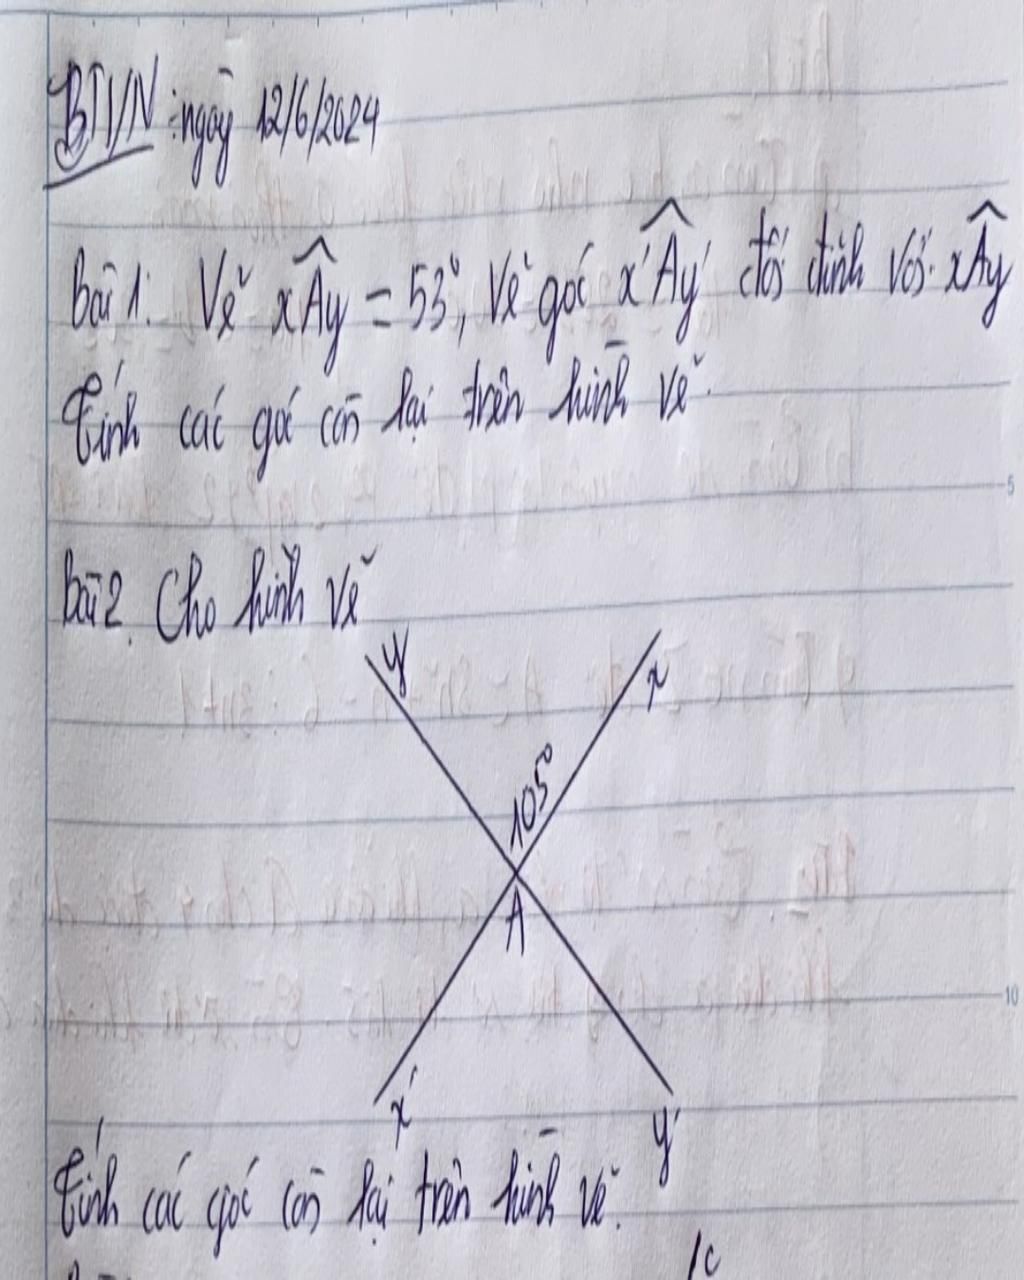 BTVN: ngày 12/6/2024
bài 1. Vẽ xÂy = 53°, vẽ góc x'Ây' đối đỉnh với xÂy
Tính các góc còn lại trên hình vẽ.
5
bài 2. Cho hình vẽ
y x
105°
A
10
x' y'
Tính các góc còn lại trên hình vẽ.